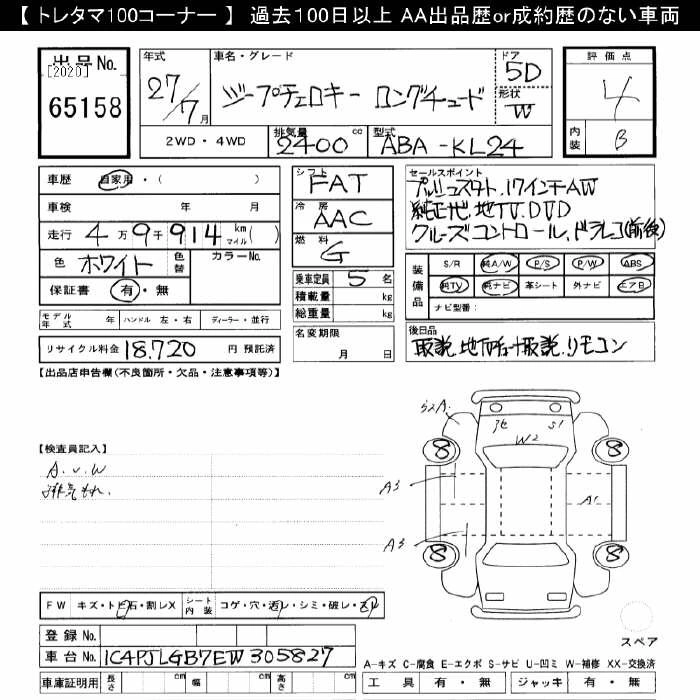 【 トレタマ100コーナー 】 過去100日以上 AA出品歴or成約歴のない車両
出品No.
[2020]
65158
年式
27/7月
車名・グレード
ジープチェロキー ロングチュード
ドア
5D
形状
W
評価点
4
内装
B
2WD・4WD
排気量
2400 cc
型式
ABA-KL24
車歴 自家用・( )
車検 年 月
走行 4万9千914 km マイル( )
色 ホワイト 色替 カラーNo.
保証書 有・無
シフト
FAT
冷房
AAC
燃料
G
乗車定員 5 名
積載量 kg
総重量 kg
セールスポイント
プッシュスタート、17インチAW
純正ナビ、地TV、DVD
クルーズコントロール、ドラレコ(前後)
装備品
S/R 純A/W P/S P/W ABS
純TV 純ナビ 革シート 外ナビ エアB
ナビ型番:
モデル年式 年 ハンドル 左・右 ディーラー・並行
リサイクル料金 18,720 円 預託済
名変期限
月 日
後日品
取説、地デジチューナー取説、リモコン
【出品店申告欄(不良箇所・欠品・注意事項等)】
【検査員記入】
A.U.W
排気もれ.
S2A.
S1
W2
8 8
A3
A1
A3
8 8
FW キズ・トビ石・割レX シート内装 コゲ・穴・汚レ・シミ・破レ・スレ
登録No.
車台No. 1C4PJLGB7EW305827
車庫証明用 長さ cm 幅 cm 高さ cm
スペア
A-キズ C-腐食 E-エクボ S-サビ U-凹ミ W-補修 XX-交換済
工具 有・無 ジャッキ 有・無